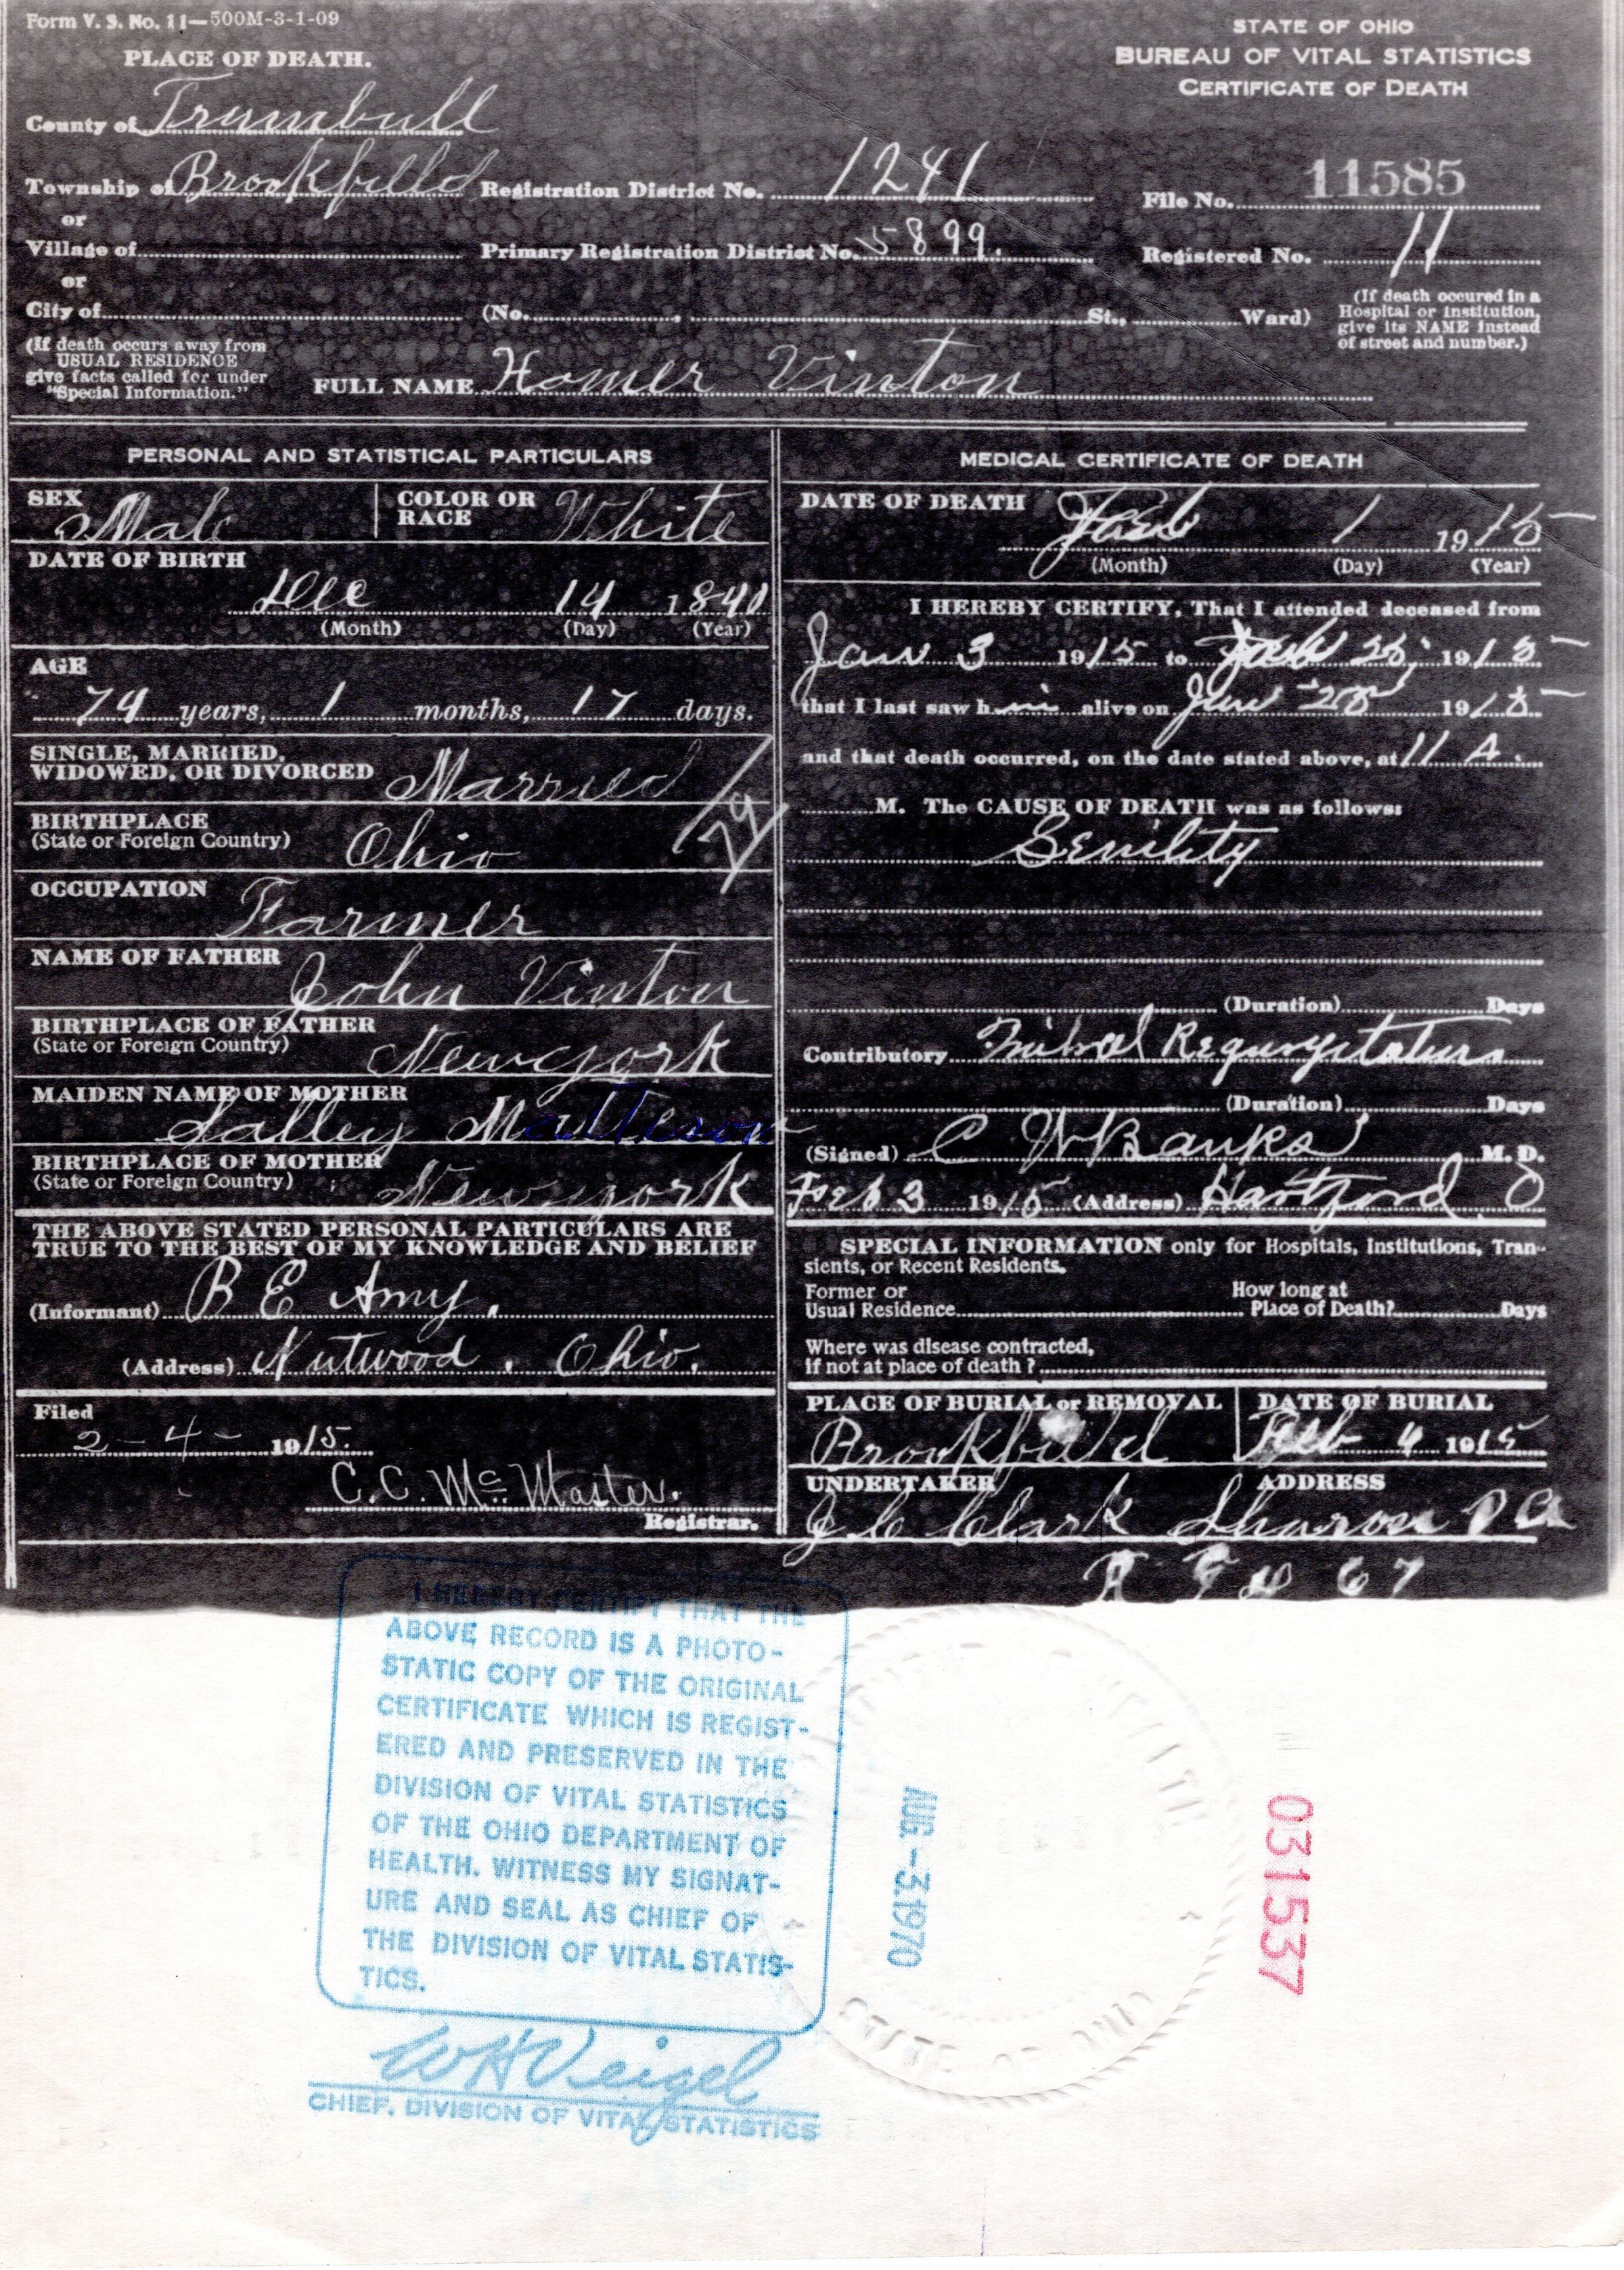 Form V. S. No. 11—500M-3-1-09
STATE OF OHIO
BUREAU OF VITAL STATISTICS
CERTIFICATE OF DEATH
PLACE OF DEATH.
County of Trumbull
Township of Brookfield Registration District No. 1241 File No. 11585
or
Village of Primary Registration District No. 5899. Registered No. 11
or
City of (No. , St., Ward)
(If death occured in a
Hospital or Institution,
give its NAME instead
of street and number.)
(If death occurs away from
USUAL RESIDENCE
give facts called for under
"Special Information."
FULL NAME Homer Vinton
PERSONAL AND STATISTICAL PARTICULARS
SEX Male
COLOR OR
RACE White
DATE OF BIRTH
Dec 14 1840
(Month) (Day) (Year)
AGE
74 years, 1 months, 17 days.
SINGLE, MARRIED,
WIDOWED, OR DIVORCED Married
74
BIRTHPLACE
(State or Foreign Country) Ohio
OCCUPATION
Farmer
NAME OF FATHER
John Vinton
BIRTHPLACE OF FATHER
(State or Foreign Country) Newyork
MAIDEN NAME OF MOTHER
Salley Matteson
BIRTHPLACE OF MOTHER
(State or Foreign Country) Newyork
THE ABOVE STATED PERSONAL PARTICULARS ARE
TRUE TO THE BEST OF MY KNOWLEDGE AND BELIEF
(Informant) B E Amy.
(Address) Nutwood. Ohio.
Filed
2-4- 1915.
C. C. Mc Master.
Registrar.
MEDICAL CERTIFICATE OF DEATH
DATE OF DEATH Feb 1 1915
(Month) (Day) (Year)
I HEREBY CERTIFY, That I attended deceased from
Jan 3 1915 to 1915
that I last saw him alive on Jan 1915
and that death occurred, on the date stated above, at 11 A.
M. The CAUSE OF DEATH was as follows:
Senility
(Duration) Days
Contributory
(Duration) Days
(Signed) C W Banks M. D.
Feb 3 1915 (Address) Hartford O
SPECIAL INFORMATION only for Hospitals, Institutions, Tran-
sients, or Recent Residents.
Former or
Usual Residence
How long at
Place of Death? Days
Where was disease contracted,
if not at place of death?
PLACE OF BURIAL or REMOVAL
Brookfield
DATE OF BURIAL
Feb 4 1915
UNDERTAKER ADDRESS
J C Clark Sharon Pa
R F D 67
I HEREBY CERTIFY THAT THE
ABOVE RECORD IS A PHOTO-
STATIC COPY OF THE ORIGINAL
CERTIFICATE WHICH IS REGIST-
ERED AND PRESERVED IN THE
DIVISION OF VITAL STATISTICS
OF THE OHIO DEPARTMENT OF
HEALTH. WITNESS MY SIGNAT-
URE AND SEAL AS CHIEF OF
THE DIVISION OF VITAL STATIS-
TICS.
WH Veigel
CHIEF, DIVISION OF VITAL STATISTICS
AUG.-3.1970
STATE OF OHIO
031537